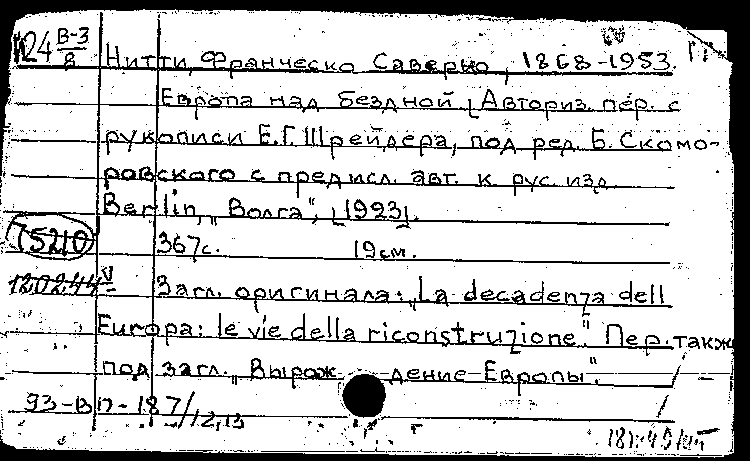 124 В-3/В
Нитти, Франческо Саверио, 1868-1953.
Европа над бездной [Авториз. пер. с
рукописи Е.Г. Шрейдера, под ред. Б. Скомо-
ровского с предисл. авт. к рус. изд.
Berlin, „Волга", [1923].
75210
367с. 19см.
120244 V
Загл. оригинала: „La decadenza dell
Europa: le vie della riconstruzione." Пер. также
под загл. „Вырождение Европы".
93-ВП-187/12,13